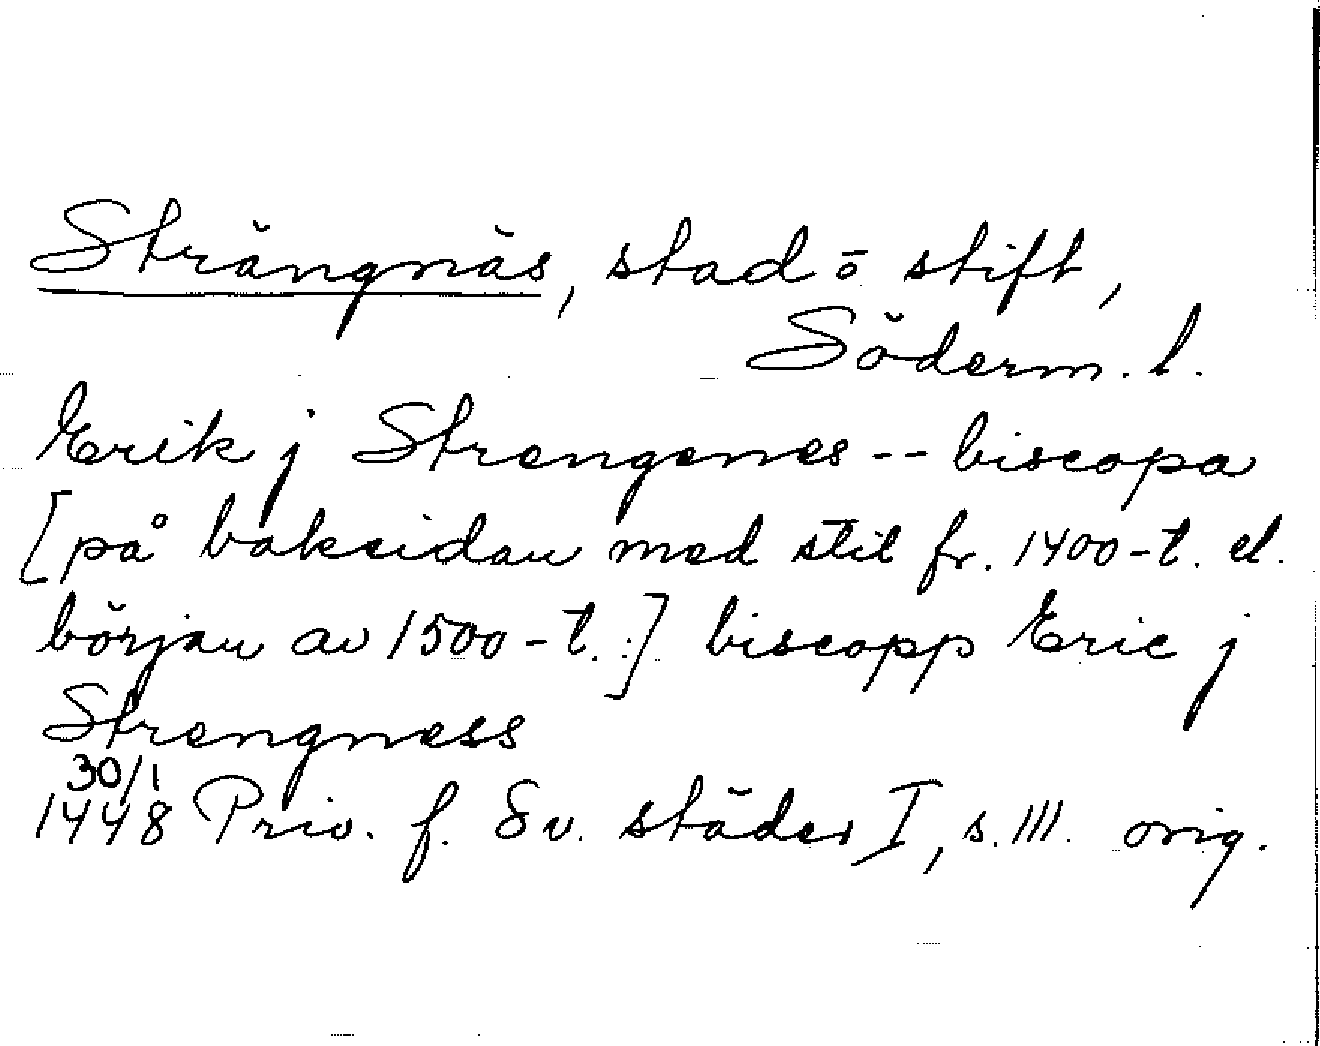 Strängnäs, stad o stift,
Söderm. l.
Erik j Strengenes -- biscopa
[på baksidan med stil fr. 1400-t. el.
början av 1500-t.:] biscopp Eric j
Strengness
30/1
1448 Priv. f. Sv. städer I, s. 111. orig.